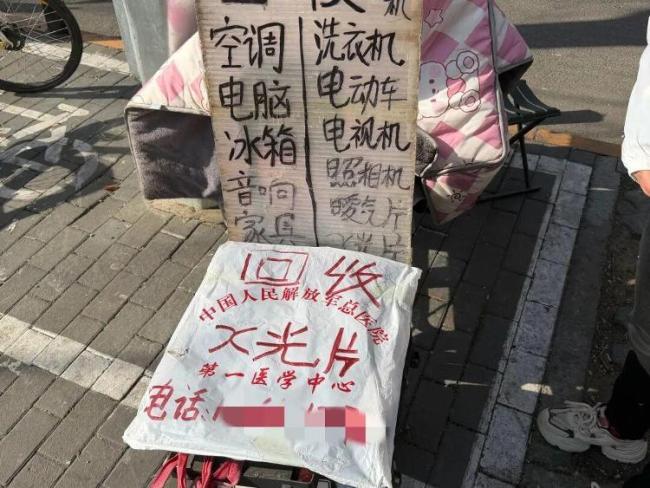 机
空调
洗衣机
电脑
电动车
冰箱
电视机
音响
照相机
家具
暧气片
光片
回收
中国人民解放军总医院
X光片
第一医学中心
电话: